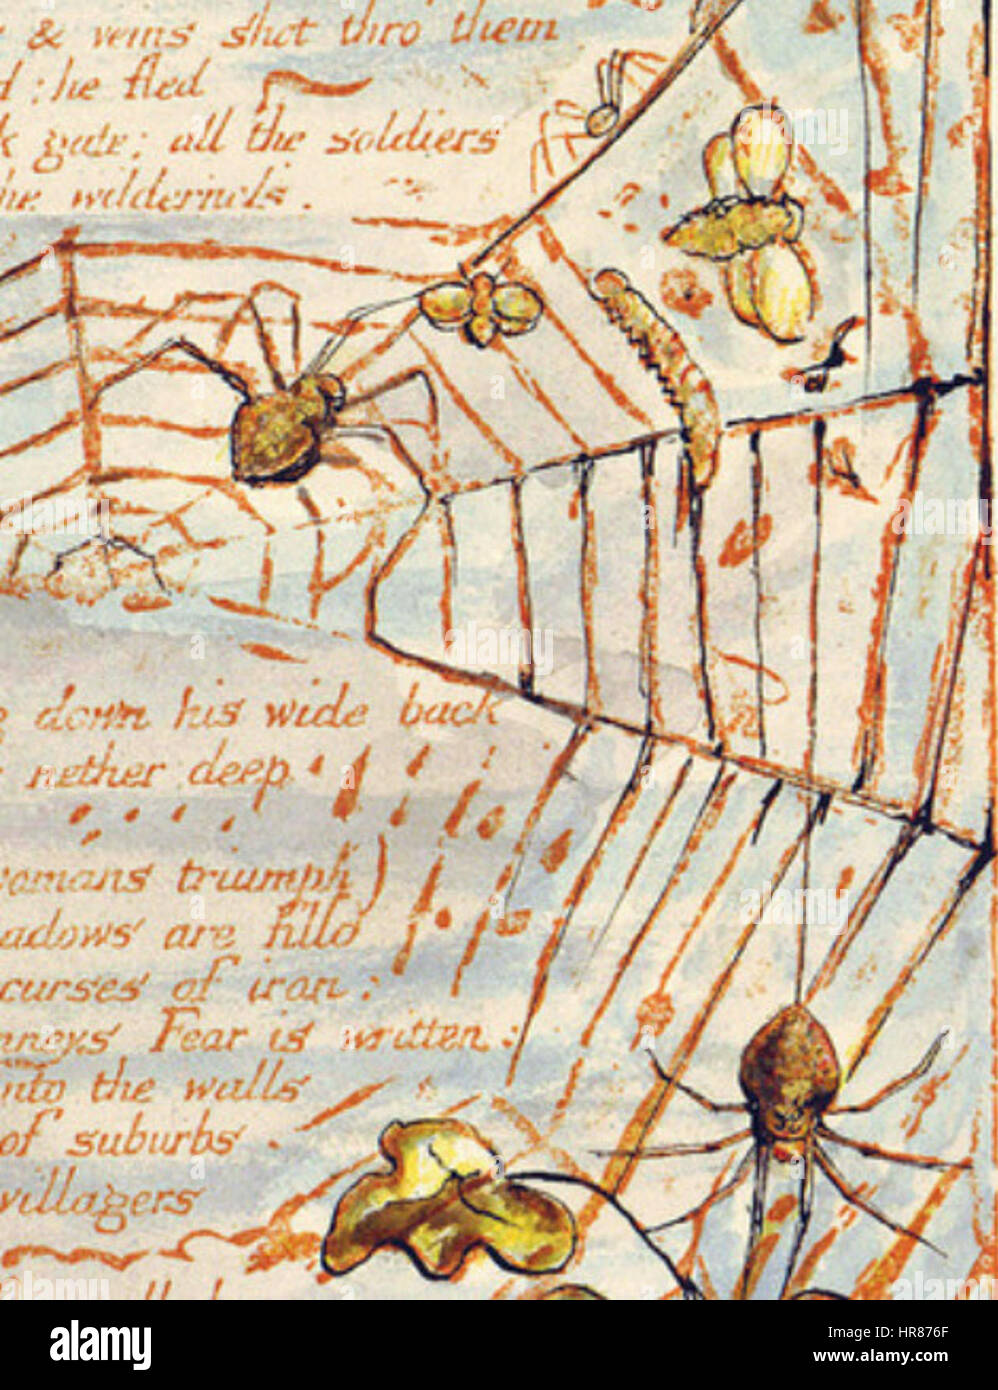 & veins shot thro them
: he fled
gate; all the soldiers
he wilderness.
down his wide back
nether deep
womans triumph)
adows are filld
curses of iron:
nneys Fear is written:
nto the walls
of suburbs
villagers
alamy
Image ID: HR876F
www.alamy.com